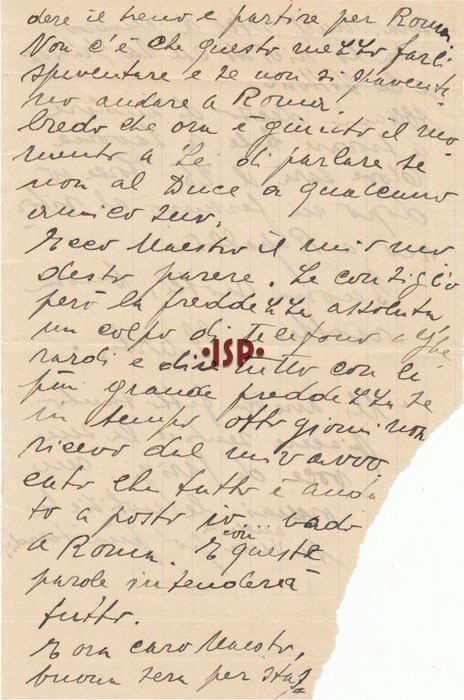 dere il treno e partire per Roma
Non c'è che questo mezzo farli
spaventare e se non si spaventa
no andare a Roma.
Credo che ora è giunto il mo
mento a Lei di parlare se
non al Duce a qualcuno
amico suo.
Ecco Maestro il mio mo
desto parere. Le consiglio
però la freddezza assoluta
un colpo di telefono a Ghe
rardi e dire tutto con la
più grande freddezza se
in tempo otto giorni non
ricevo dal mio avvo
cato che tutto è anda
to a posto io... vado
a Roma. E con queste
parole intenderà
tutto.
E ora caro Maestro,
buona sera per
·JSP·